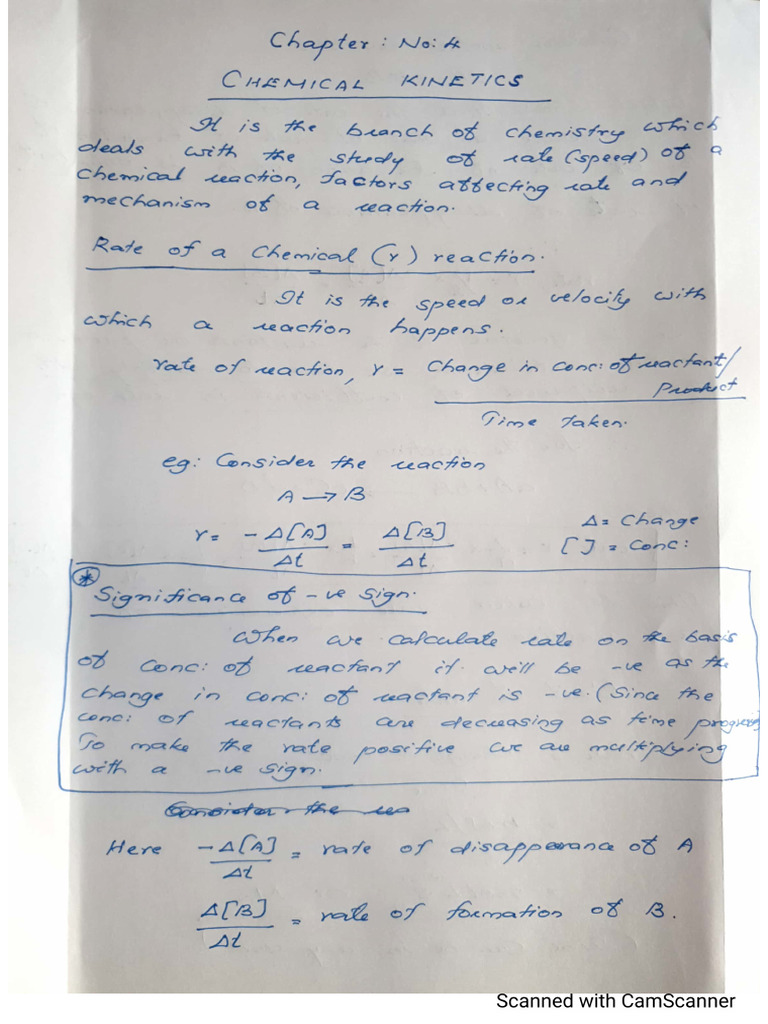 Chapter : No: 4
CHEMICAL KINETICS
It is the branch of chemistry which
deals with the study of rate (speed) of a
Chemical reaction, factors affecting rate and
mechanism of a reaction.
Rate of a Chemical (r) reaction.
It is the speed or velocity with
which a reaction happens.
rate of reaction, r = Change in conc: of reactant/
Product
Time taken.
eg: Consider the reaction
A → B
r = -Δ[A]/Δt = Δ[B]/Δt.
Δ = Change
[ ] = Conc:
* Significance of -ve sign.
When we calculate rate on the basis
of conc: of reactant it will be -ve as the
change in conc: of reactant is -ve. (Since the
conc: of reactants are decreasing as time
To make the rate positive we are multiplying
with a -ve sign.
Here -Δ[A]/Δt = rate of disapperance of A
Δ[B]/Δt = rate of formation of B.
Scanned with CamScanner